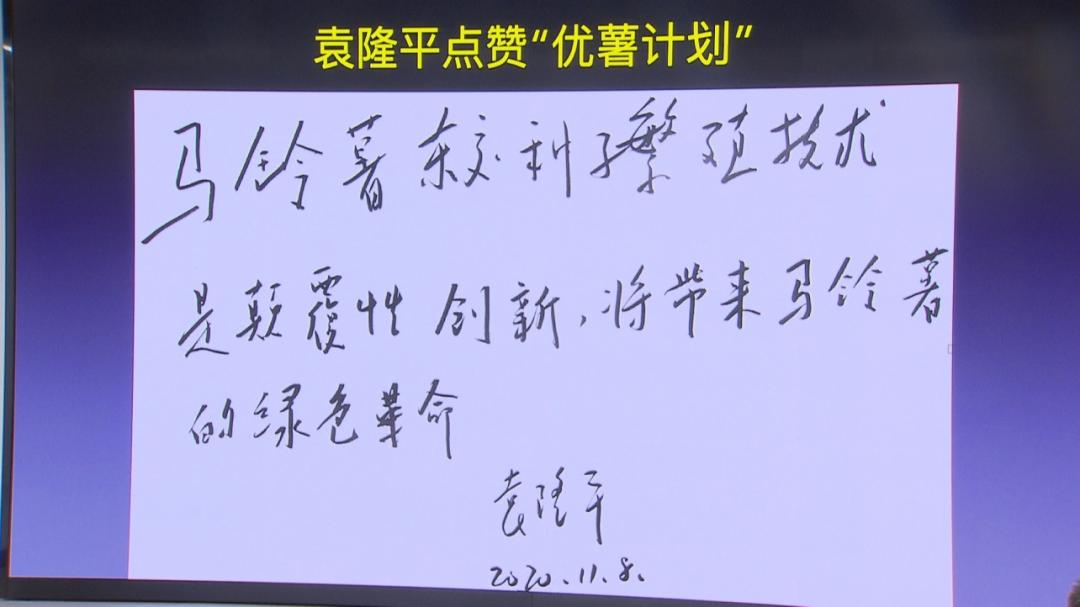 袁隆平点赞“优薯计划”
马铃薯杂交种子繁殖技术
是颠覆性创新,将带来马铃薯
的绿色革命
袁隆平
2020.11.8.